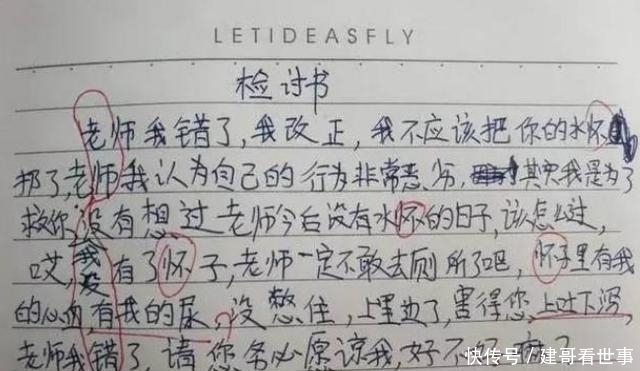 LETIDEASFLY
检讨书
老师我错了,我改正,我不应该把你的水怀
了,老师我认为自己的行为非常恶劣,其实我是为了
救你没有想过老师今后没有水怀的日子,该怎么过,
哎,我没有了怀子,老师一定不敢去厕所了吧,怀子里有我
的心血,有我的尿,没憋住,上里边了,害得您上吐下泻,
老师我错了,请您务必原谅我,好不好
快传号/建哥看世事